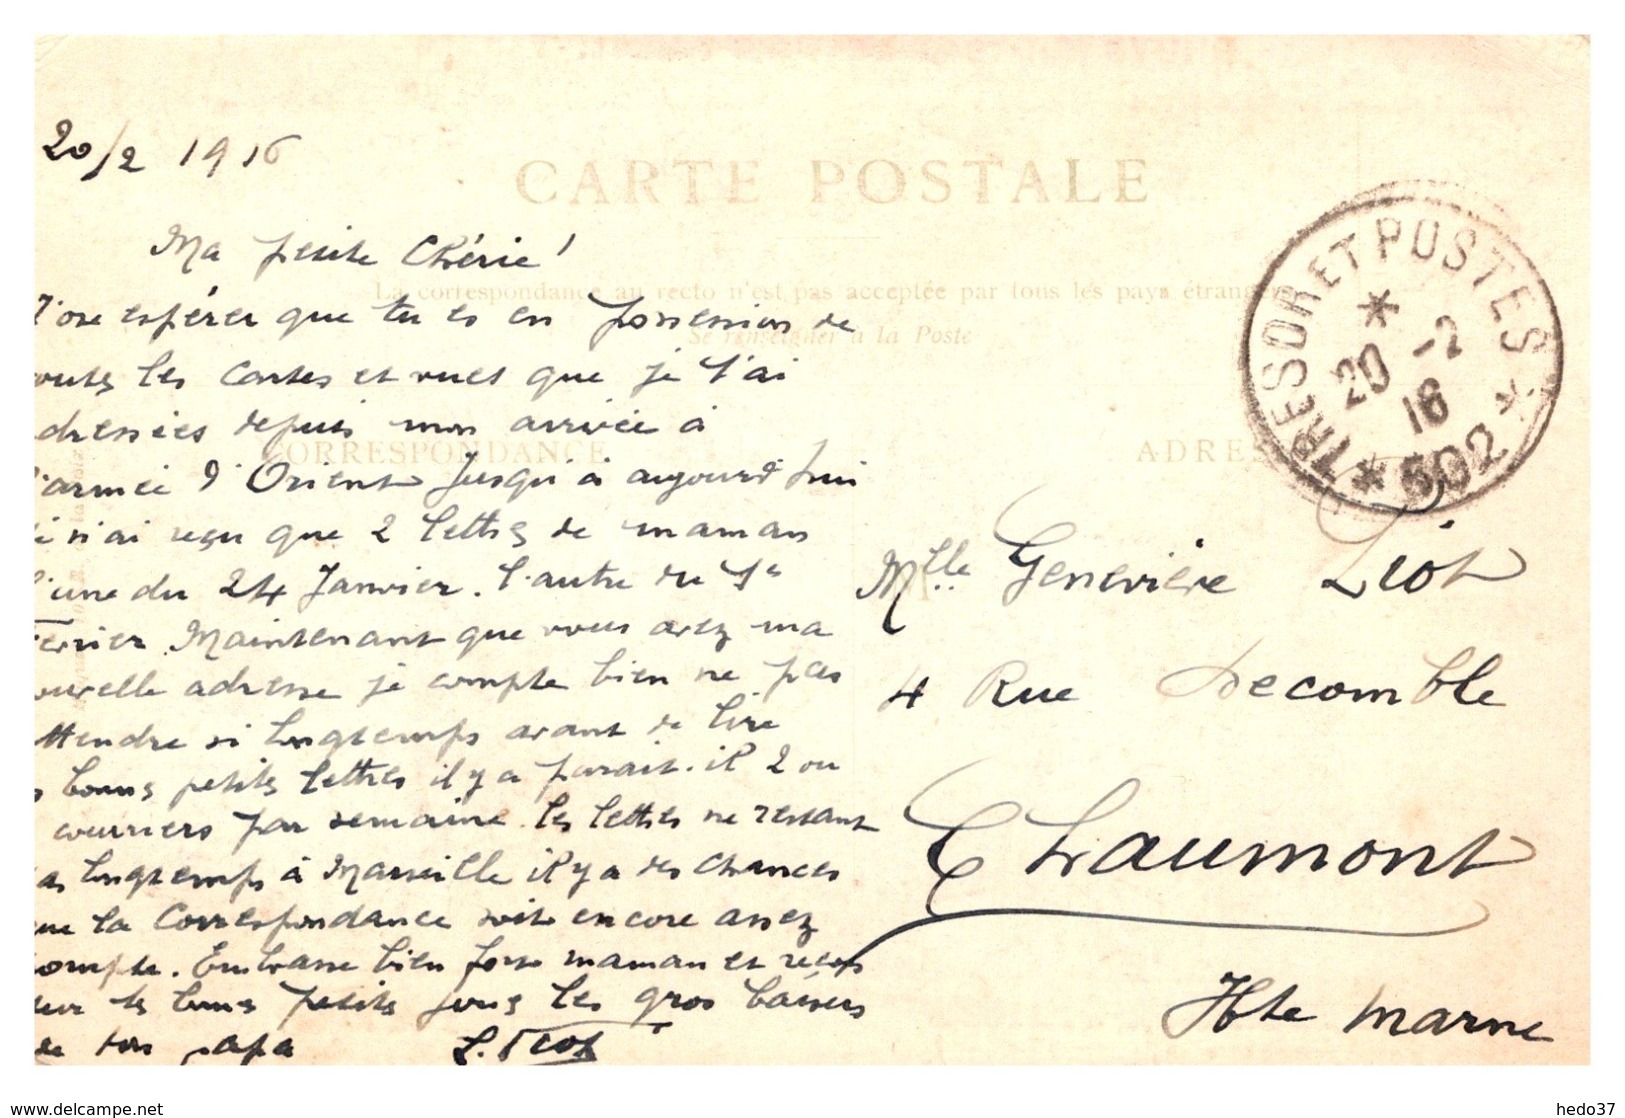 20/2 1916
CARTE POSTALE
Ma petite Chérie !
La correspondance au recto n'est pas acceptée par tous les pays étrangers
Se renseigner à la Poste
J'ose espérer que tu es en possession de
outes les cartes et vues que je t'ai
dressées depuis mon arrivée à
l'armée d'Orient Jusqu'à aujourd'hui
n'ai reçu que 2 lettres de maman
l'une du 24 Janvier. l'autre du 1er
Fevrier. Maintenant que vous avez ma
ouvelle adresse je compte bien ne pas
ttendre si longtemps avant de lire
s bonnes petites lettres il y a parait-il 2 ou
courriers par semaine. les lettres ne restant
as longtemps à Marseille il y a des chances
que la Correspondance soit encore assez
ompte. Embrasse bien fort maman et reçois
sur tes bonnes petites joues les gros baisers
de ton papa L. Liot
CORRESPONDANCE
ADRESSE
TRESOR ET POSTES
20 -2
16
* 502 *
Mlle Geneviève Liot
4 Rue Decomble
Chaumont
Hte Marne
hedo37
https://www.delcampe.net